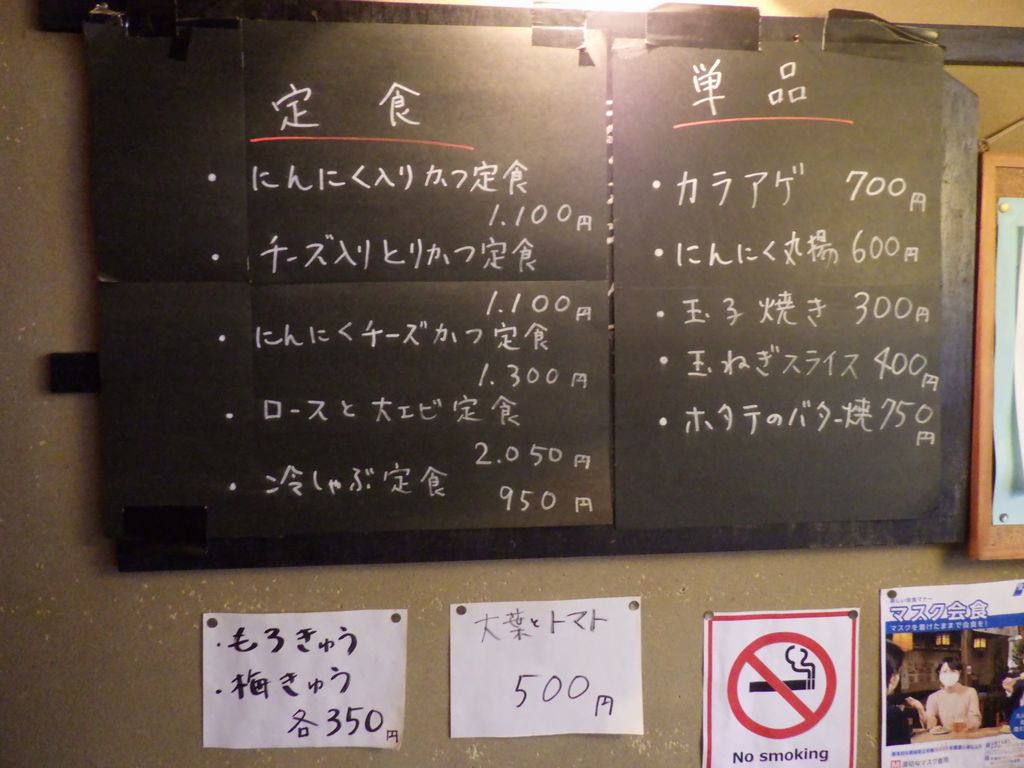 定食
・にんにく入りかつ定食
1.100円
・チーズ入りとりかつ定食
1.100円
・にんにくチーズかつ定食
1.300円
・ロースと大エビ定食
2.050円
・冷しゃぶ定食
950円
単品
・カラアゲ 700円
・にんにく丸揚 600円
・玉子焼き 300円
・玉ねぎスライス 400円
・ホタテのバター焼 750円
・もろきゅう
・梅きゅう
各350円
大葉とトマト
500円
No smoking
マスク会食
マスクを着けたままで会食を!